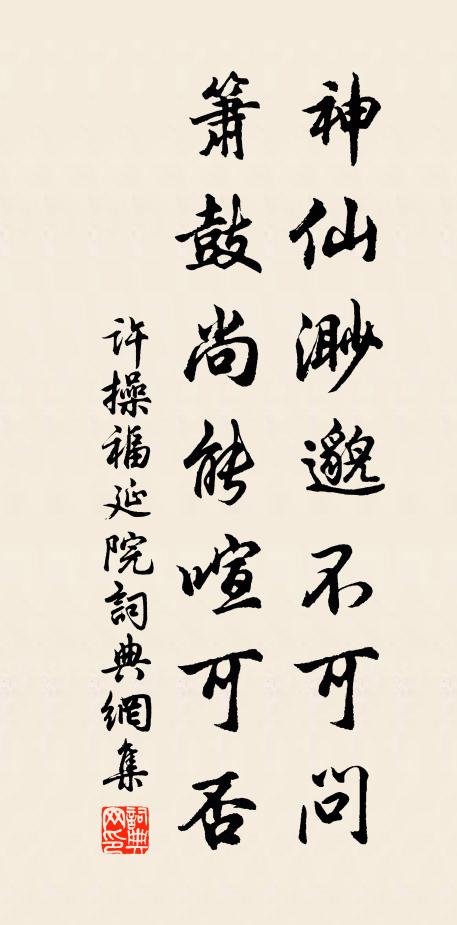 神仙渺邈不可問
簫鼓尚能喧可否
許操福延院詞典網集
詞典網印